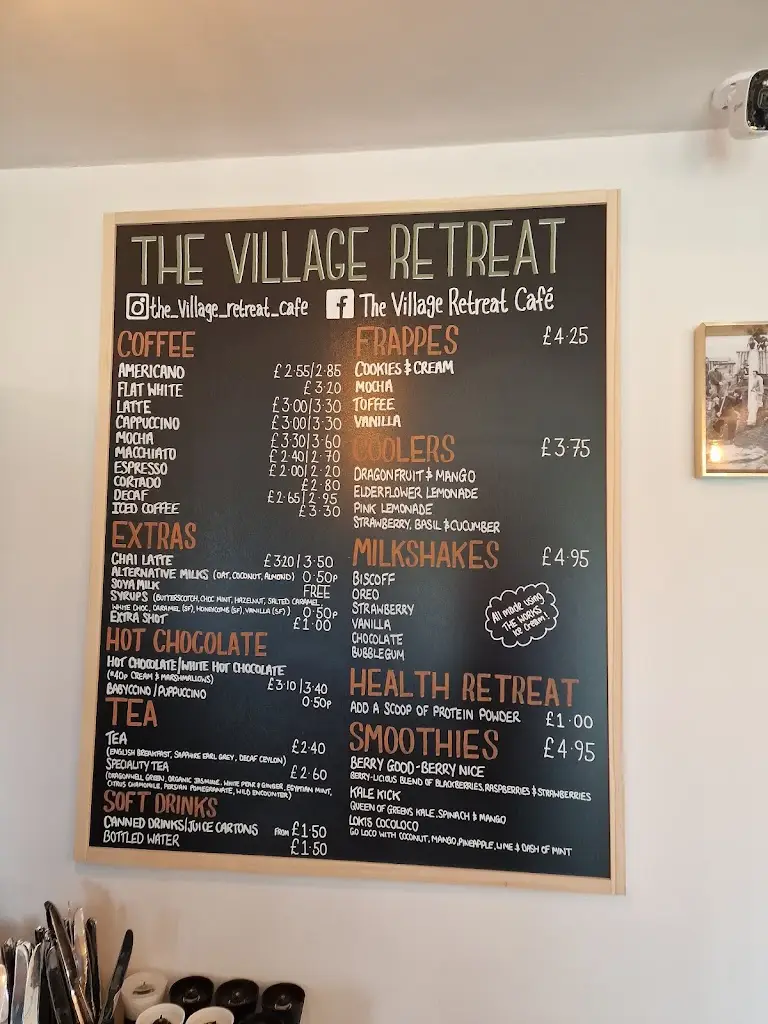 THE VILLAGE RETREAT
the_Village_retreat_cafe The Village Retreat Café
COFFEE
AMERICANO £2·55/2·85
FLAT WHITE £3·20
LATTE £3·00/3·30
CAPPUCCINO £3·00/3·30
MOCHA £3·30/3·60
MACCHIATO £2·40/2·70
ESPRESSO £2·00/2·20
CORTADO £2·80
DECAF £2·65/2·95
ICED COFFEE £3·30
EXTRAS
CHAI LATTE £3·20/3·50
ALTERNATIVE MILKS (OAT, COCONUT, ALMOND) 0·50p
SOYA MILK FREE
SYRUPS (BUTTERSCOTCH, CHOC MINT, HAZELNUT, SALTED CARAMEL,
WHITE CHOC, CARAMEL (SF), HONEYCOMB (SF), VANILLA (SF)) 0·50p
EXTRA SHOT £1·00
HOT CHOCOLATE
HOT CHOCOLATE/WHITE HOT CHOCOLATE
(+40p CREAM & MARSHMALLOWS) £3·10/3·40
BABYCCINO/PUPPUCCINO 0·50p
TEA
TEA £2·40
(ENGLISH BREAKFAST, SAPPHIRE EARL GREY, DECAF CEYLON)
SPECIALITY TEA £2·60
(DRAGONWELL GREEN, ORGANIC JASMINE, WHITE PEAR & GINGER, EGYPTIAN MINT,
CITRUS CHAMOMILE, PERSIAN POMEGRANATE, WILD ENCOUNTER)
SOFT DRINKS
CANNED DRINKS/JUICE CARTONS FROM £1·50
BOTTLED WATER £1·50
FRAPPES £4·25
COOKIES & CREAM
MOCHA
TOFFEE
VANILLA
COOLERS £3·75
DRAGONFRUIT & MANGO
ELDERFLOWER LEMONADE
PINK LEMONADE
STRAWBERRY, BASIL & CUCUMBER
MILKSHAKES £4·95
BISCOFF
OREO
STRAWBERRY
VANILLA
CHOCOLATE
BUBBLEGUM
All made using
THE WORKS
Ice Cream!
HEALTH RETREAT
ADD A SCOOP OF PROTEIN POWDER £1·00
SMOOTHIES £4·95
BERRY GOOD-BERRY NICE
BERRY-LICIOUS BLEND OF BLACKBERRIES, RASPBERRIES & STRAWBERRIES
KALE KICK
QUEEN OF GREENS KALE, SPINACH & MANGO
LOKIS COCOLOCO
GO LOCO WITH COCONUT, MANGO, PINEAPPLE, LIME & DASH OF MINT